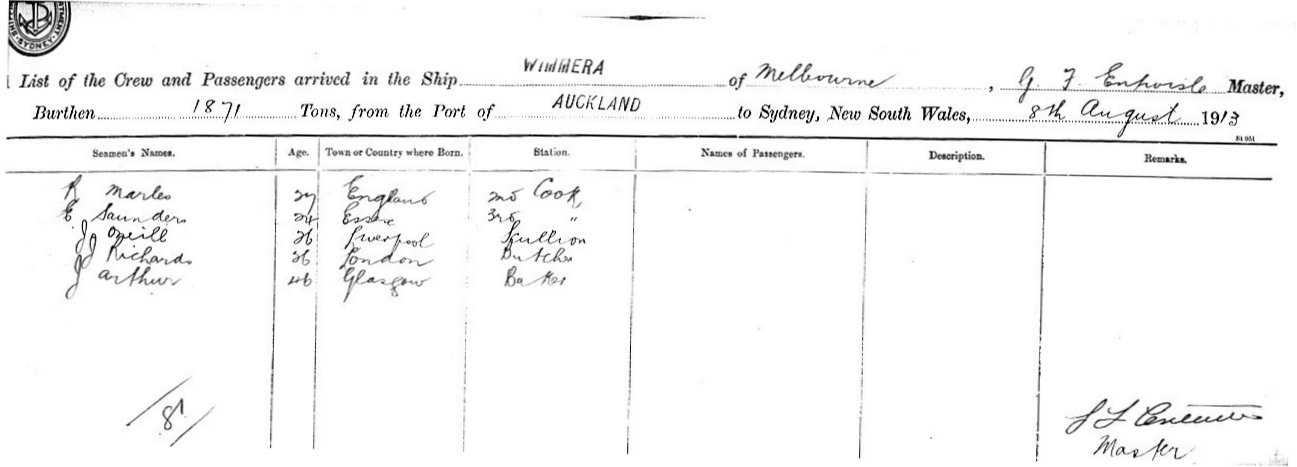 SYDNEY
List of the Crew and Passengers arrived in the Ship WIMMERA of Melbourne, G. F. Entwisle Master,
Burthen 1871 Tons, from the Port of AUCKLAND to Sydney, New South Wales, 8th August 1913
Seamen's Names. Age. Town or Country where Born. Station. Names of Passengers. Description. Remarks.
R Marles 27 England 2nd Cook,
E Saunders 24 Essex 3rd "
J Oneill 26 Liverpool Scullion
J Richards 26 London Butcher
J Arthur 46 Glasgow Baker
/81/
Master